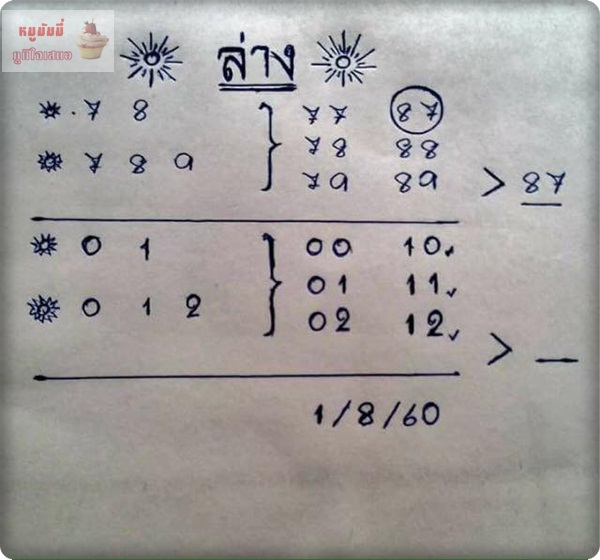 หมูมัมมี่
ยูมิโกะเสมอ
ล่าง
7 8 } 77 87
7 8 9 78 88
79 89 > 87
0 1 } 00 10 ✓
01 11 ✓
0 1 2 02 12 ✓
> __
1/8/60